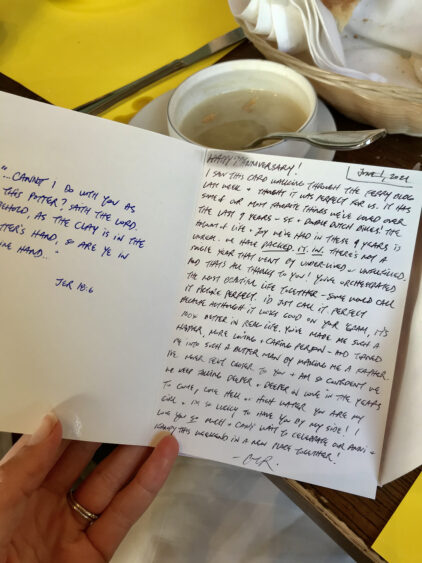 "...CANNOT I DO WITH YOU AS
THIS POTTER? SAITH THE LORD.
BEHOLD, AS THE CLAY IS IN THE
POTTER'S HAND, SO ARE YE IN
MINE HAND..."
JER 18:6
JUNE 1, 2021
HAPPY 9TH ANNIVERSARY!
I SAW THIS CARD WALKING THROUGH THE FERRY BLDG
LAST WEEK + THOUGHT IT WAS PERFECT FOR US. IT HAS
SOME OF OUR MOST FAVORITE THINGS WE'VE LOVED OVER
THE LAST 9 YEARS - SF + DUTCH THE
AMOUNT OF LIFE + JOY WE'VE HAD IN THESE 9 YEARS IS
UNREAL. WE HAVE PACKED IT IN. THERE'S NOT A
SINGLE YEAR THAT WENT BY UNDER-LIVED OR UNFULFILLED.
AND THAT'S ALL THANKS TO YOU! YOU'VE ORCHESTRATED
THE MOST LIFE TOGETHER - SOME WOULD CALL
IT PICTURE PERFECT. I'D JUST CALL IT PERFECT
BECAUSE ALTHOUGH IT LOOKS GOOD ON YOUR 'GRAM, IT'S
MUCH BETTER IN REAL LIFE. YOU'VE MADE ME SUCH A
HAPPIER, MORE LOVING + CARING PERSON - AND TURNED
ME INTO SUCH A BETTER MAN BY MAKING ME A FATHER.
I'VE NEVER FELT CLOSER TO YOU + AM SO CONFIDENT WE
WILL KEEP FALLING DEEPER + DEEPER IN LOVE IN THE YEARS
TO COME, COME HELL OR HIGH WATER YOU ARE MY
GIRL + I'M SO LUCKY TO HAVE YOU BY MY SIDE! I
LOVE YOU SO MUCH + CAN'T WAIT TO CELEBRATE OUR ANNI +
THIS WEEKEND IN A NEW PLACE TOGETHER!